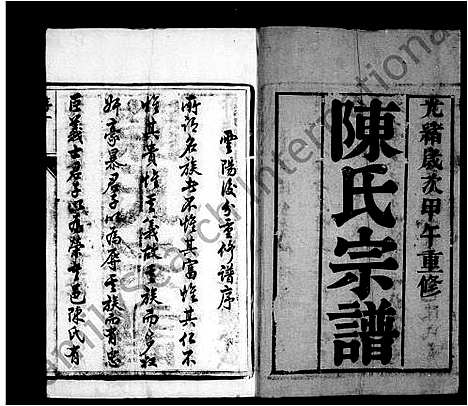 光緒歲次甲午重修
陳氏宗譜
雲陽後分重修譜序
所謂名族者不惟其富惟其仁不
惟其貴惟其義故其族而多奴
奸豪暴君子以為辱其族而有忠
臣義士君子以為榮吾邑陳氏有
Family Search International